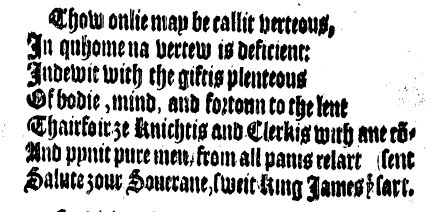 Thow onlie may be callit verteous,
In quhome na vertew is deficient:
Indewit with the giftis plenteous
Of bodie, mind, and fortoun to the lent
Thairfoir ze Knichtis and Clerkis with ane cō-
And pynit pure men, from all panis relart (sent
Salute zour Souerane, sweit King James yͤ sart.